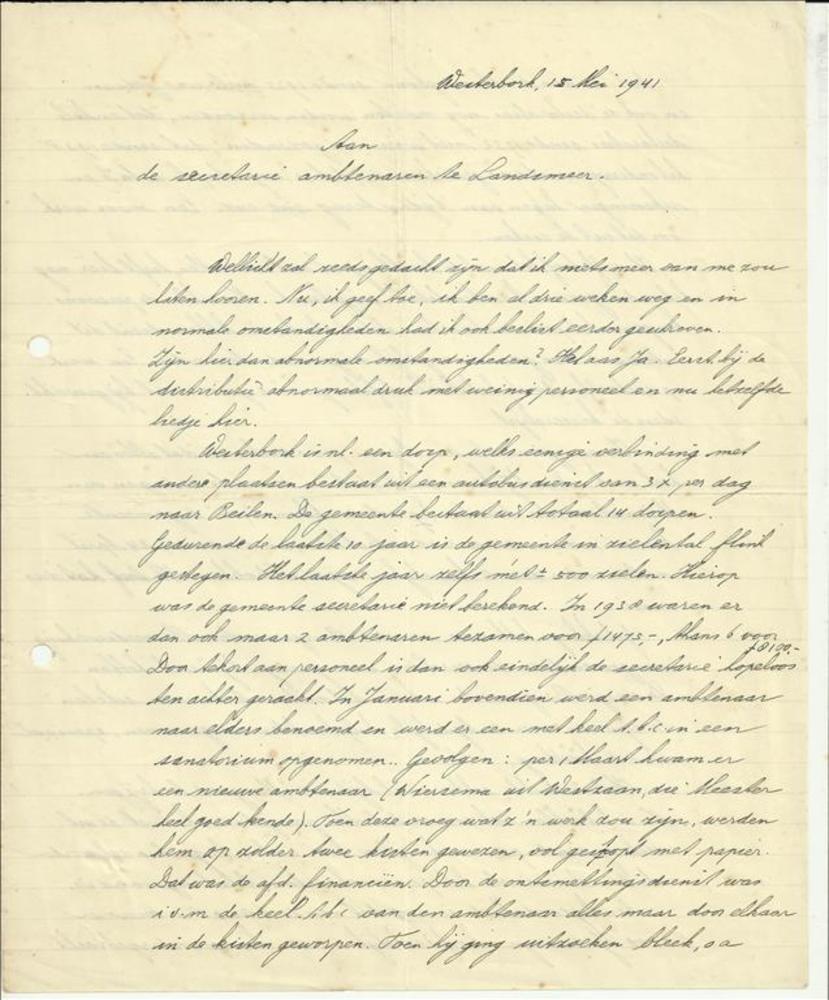 Westerbork, 15 Mei 1941
Aan
de secretarie ambtenaren te Landsmeer.
Wellicht zal reeds gedacht zijn dat ik niets meer van me zou
laten hooren. Nu, ik geef toe, ik ben al drie weken weg en in
normale omstandigheden had ik ook beslist eerder geschreven.
Zijn hier dan abnormale omstandigheden? Helaas Ja. Eerst bij de
distributie abnormaal druk met weinig personeel en nu hetzelfde
liedje hier.
Westerbork is nl. een dorp, welks eenige verbinding met
andere plaatsen bestaat uit een autobusdienst van 3 x per dag
naar Beilen. De gemeente bestaat uit totaal 14 dorpen.
Gedurende de laatste 10 jaar is de gemeente in zielental flink
gestegen. Het laatste jaar zelfs met ± 500 zielen. Hierop
was de gemeente secretarie niet berekend. In 1938 waren er
dan ook maar 2 ambtenaren tezamen voor f 1475,-, thans 6 voor
f 8100,-
Door tekort aan personeel is dan ook eindelijk de secretarie hopeloos
ten achter geraakt. In Januari bovendien werd een ambtenaar
naar elders benoemd en werd er een met keel t.b.c. in een
sanatorium opgenomen.. Gevolgen: per 1 Maart kwam er
een nieuwe ambtenaar (Wiersema uit Westzaan, die Meester
heel goed kende). Toen deze vroeg wat z'n werk zou zijn, werden
hem op zolder twee kisten gewezen, vol gestopt met papier.
Dat was de afd. financiën. Door de ontsmettingsdienst was
i.v.m de keel t.b.c van den ambtenaar alles maar door elkaar
in de kisten geworpen. Toen hij ging uitzoeken bleek, o a